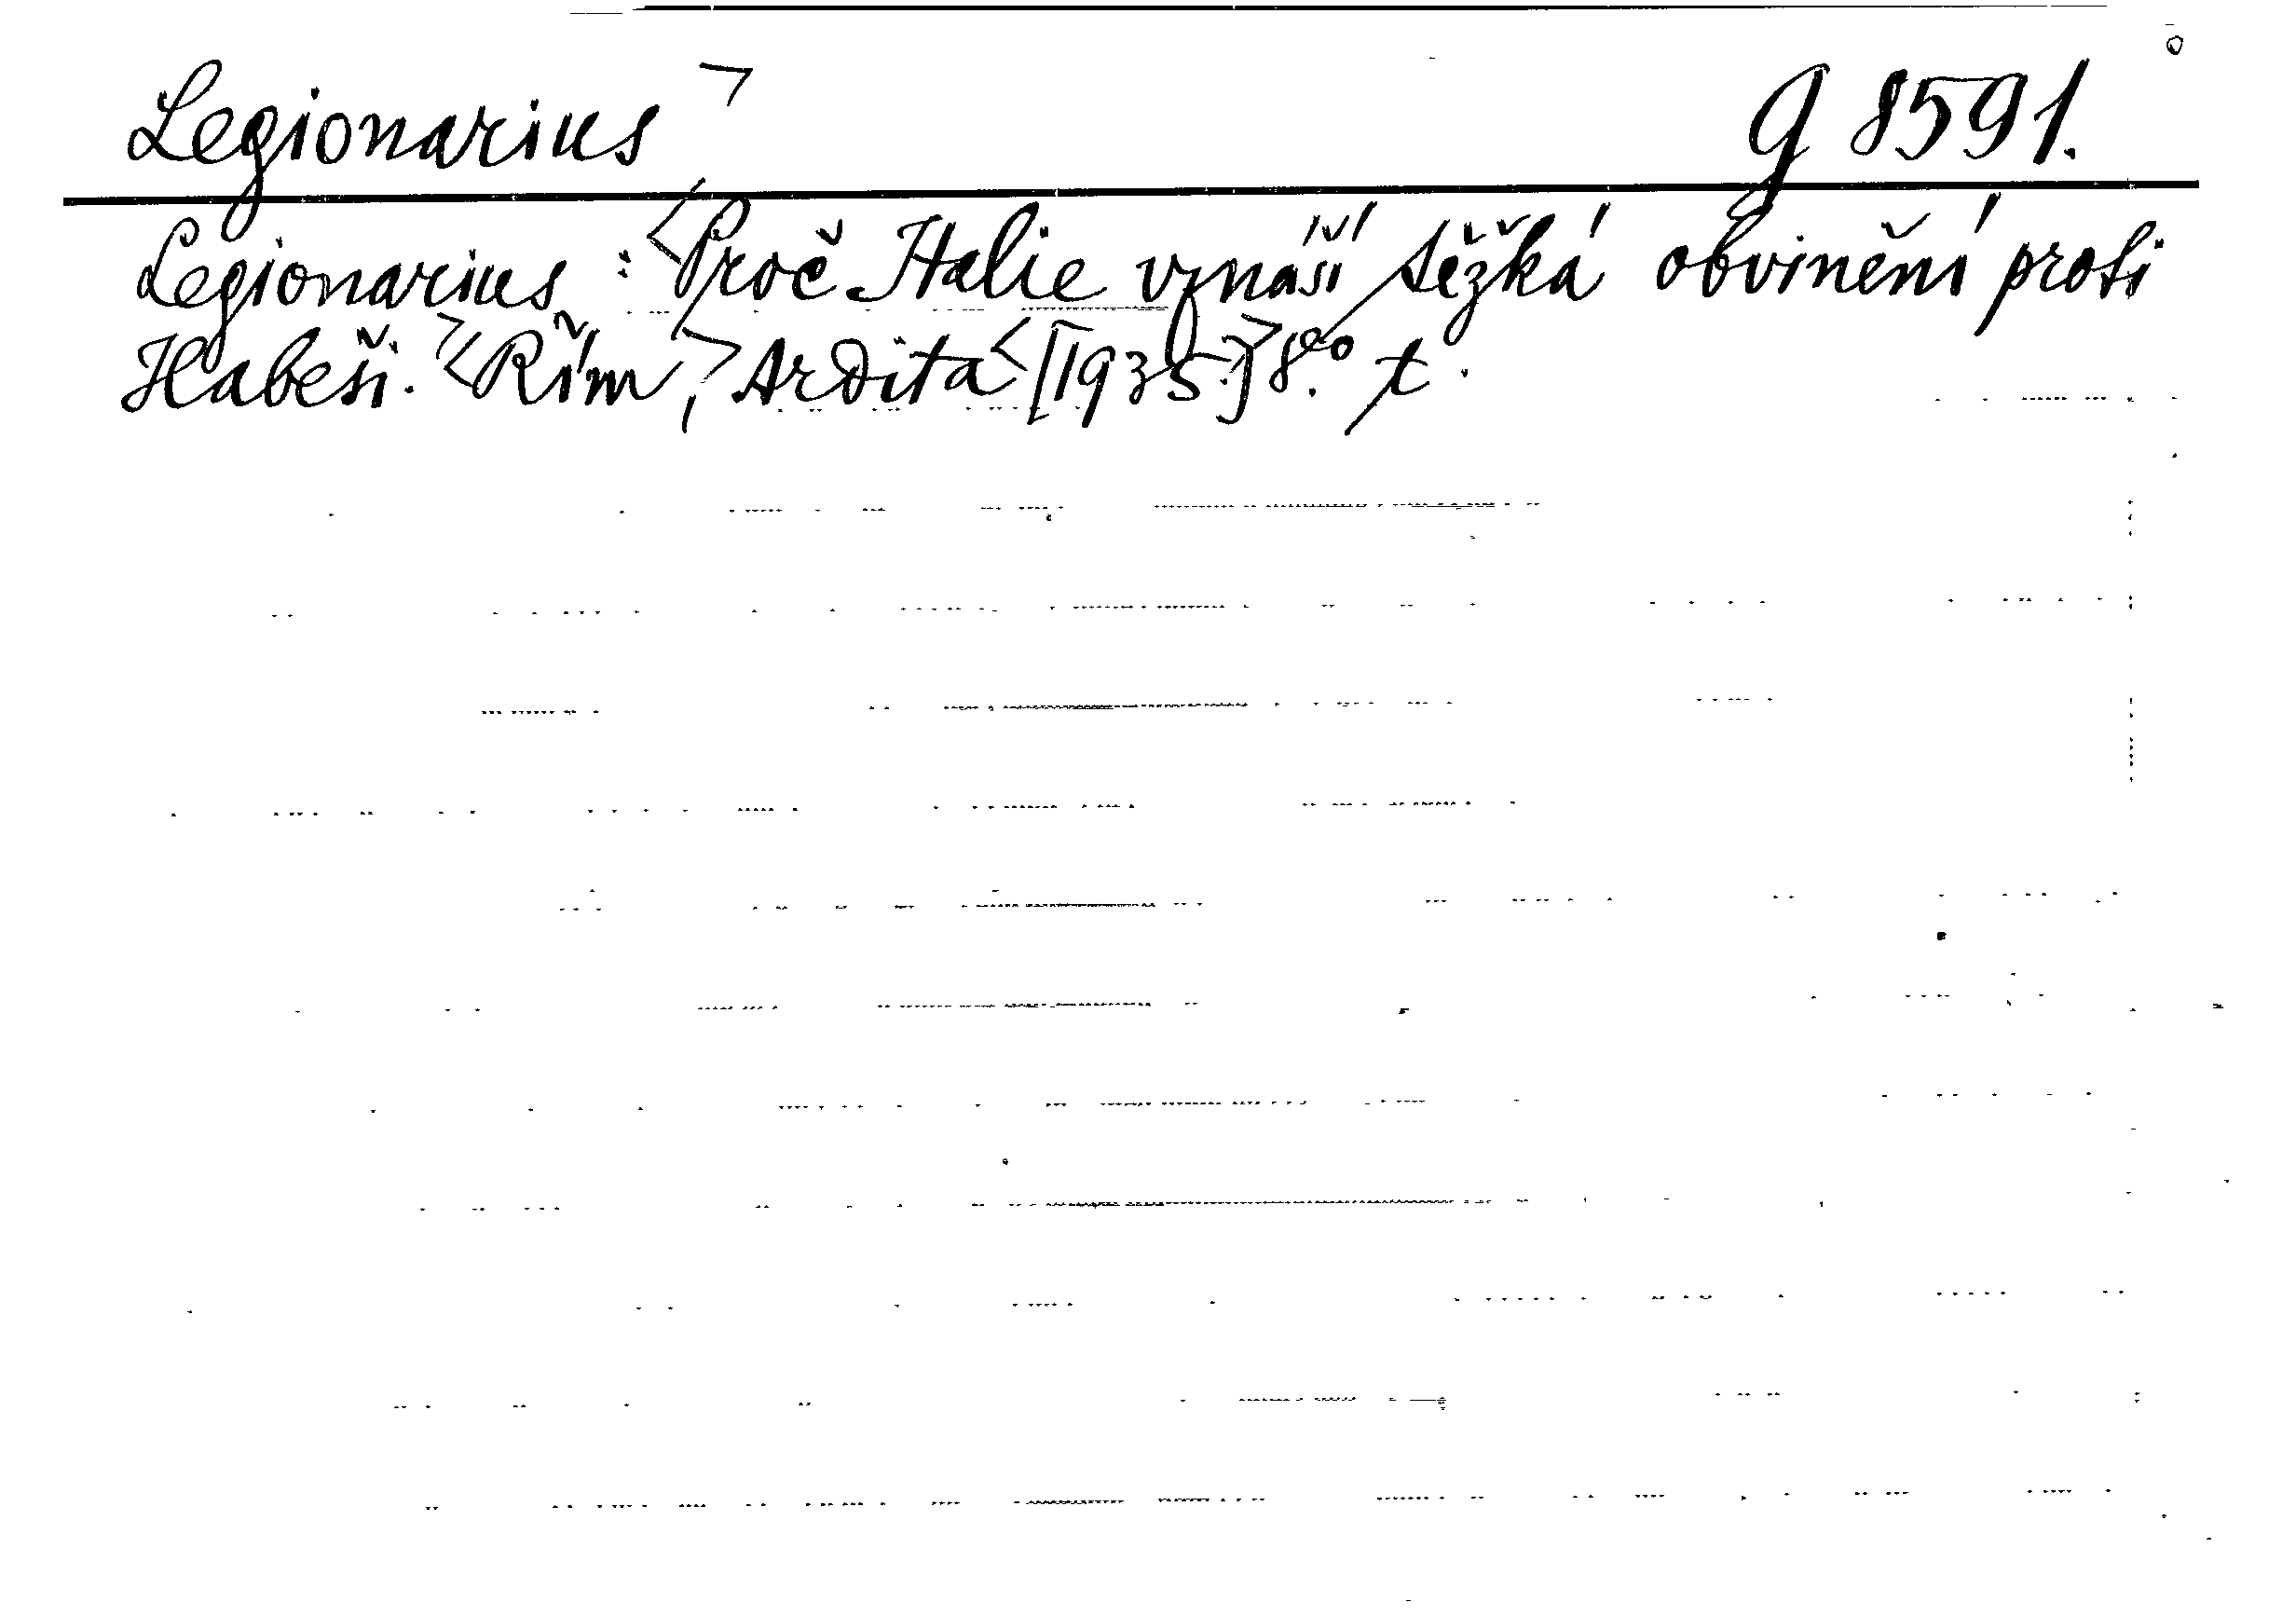 Legionarius> g 8591.
Legionarius: <Proč Italie vznáší těžká obvinění proti
Habeši.> <Řím,> Ardita <[1935.]> 8.° t.